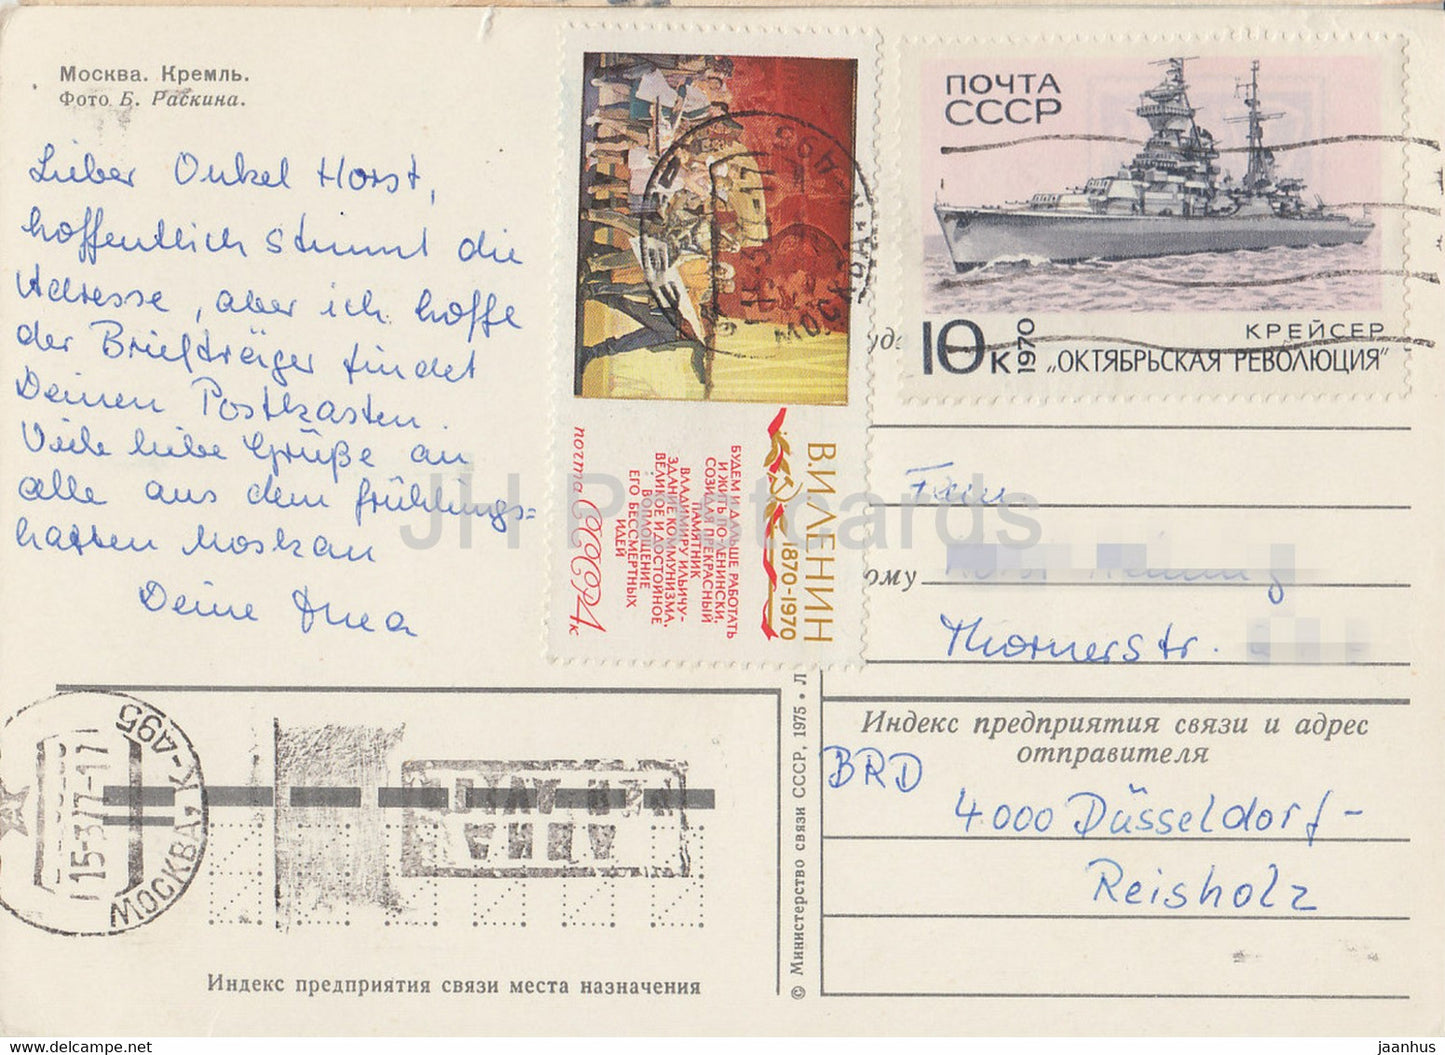 Москва. Кремль.
Фото Б. Раскина.
Lieber Onkel Horst,
hoffentlich stimmt die
Adresse, aber ich hoffe
der Briefträger findet
Deinen Postkasten.
Viele liebe Grüße an
alle aus dem frühlings=
haften Moskau
Deine
В.И.ЛЕНИН
1870-1970
БУДЕМ И ДАЛЬШЕ РАБОТАТЬ
И ЖИТЬ ПО-ЛЕНИНСКИ,
СОЗИДАЯ ПРЕКРАСНЫЙ
ПАМЯТНИК
ВЛАДИМИРУ ИЛЬИЧУ-
ЗДАНИЕ КОММУНИЗМА,
ВЕЛИКОЕ И ДОСТОЙНОЕ
ВОПЛОЩЕНИЕ
ЕГО БЕССМЕРТНЫХ
ИДЕЙ
почта СССР 4к
МОСКВА
ПОЧТА
СССР
10к 1970
КРЕЙСЕР
„ОКТЯБРЬСКАЯ РЕВОЛЮЦИЯ"
JH Postcards
ому
Thornerstr.
Индекс предприятия связи и адрес
отправителя
BRD
4000 Düsseldorf-
Reisholz
МОСКВА, К-495
15-3/77-17
Индекс предприятия связи места назначения
© Министерство связи СССР, 1975 • Л
www.delcampe.net
jaanhus